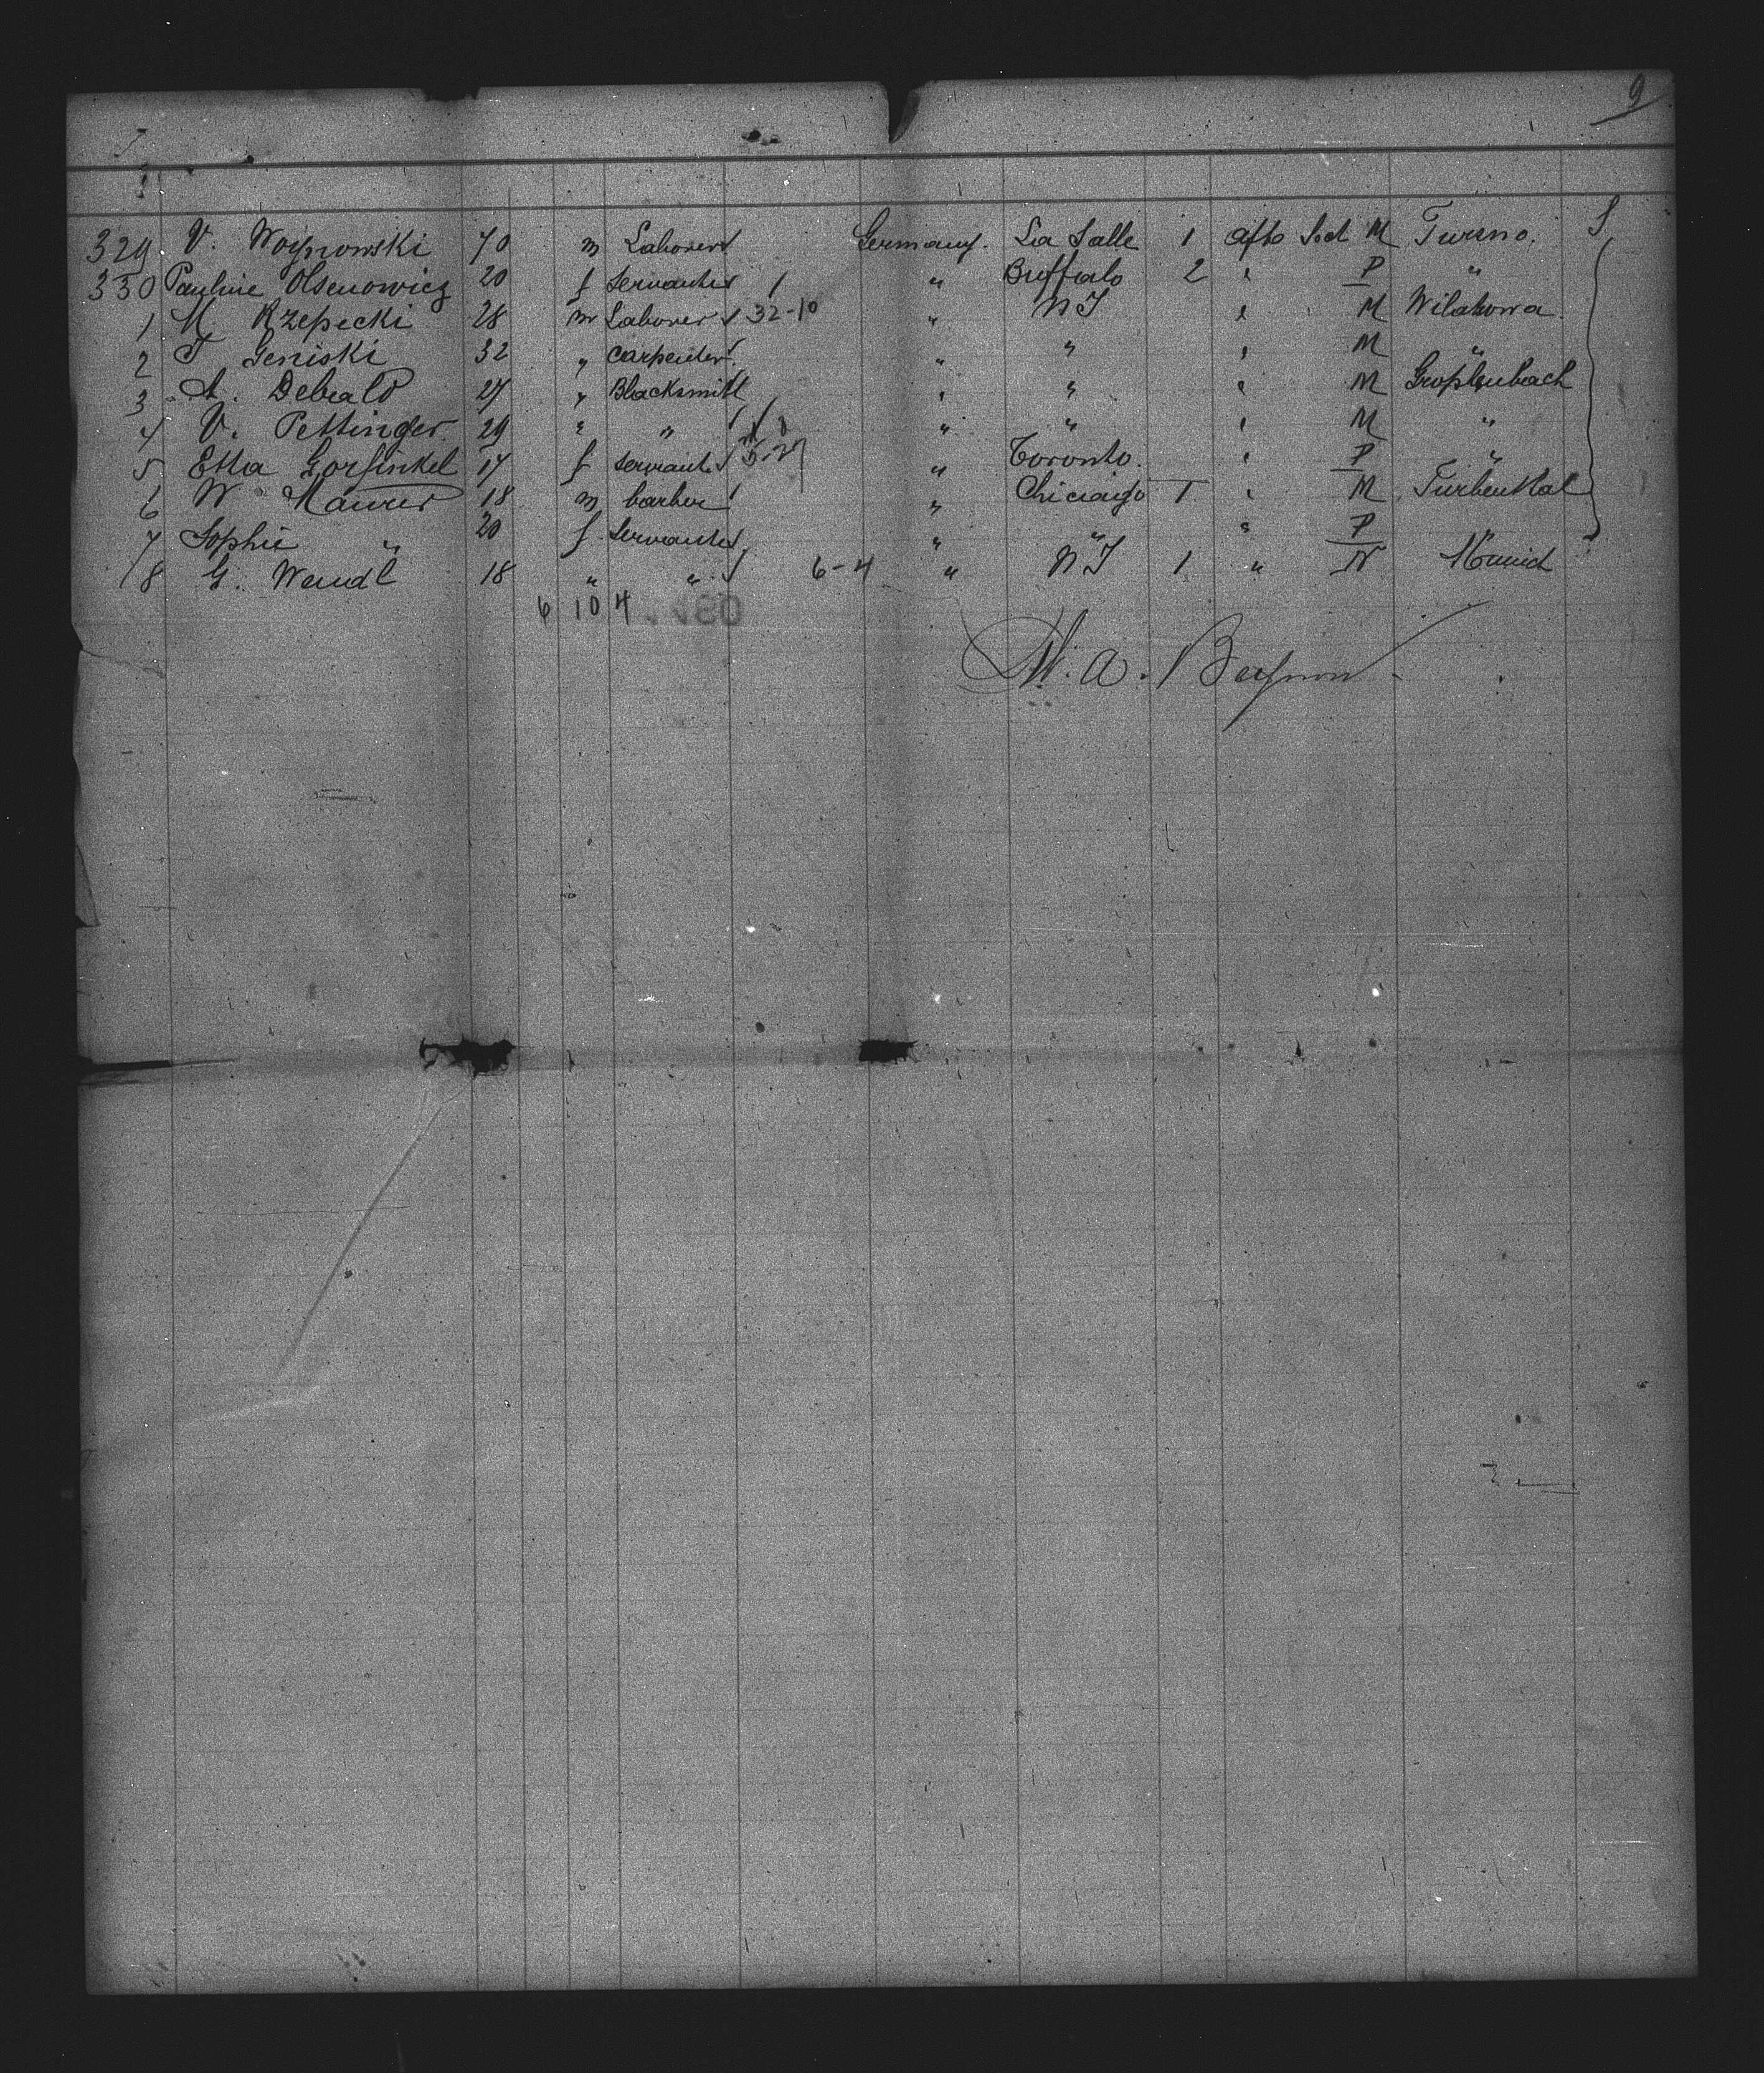 9
329 V. Woynowski 70 m Laborer Germany. La Salle 1 afto Sed M Tursno. S
330 Pauline Olsenowicz 20 f Servantes 1 " Buffalo 2 " P "
1 M. Rzepecki 28 m Laborer 32-10 " N Y " M Wilakowa.
2 T Geniski 32 " Carpenter " " " M "
3 A. Debald 27 " Blacksmith " " " M Gropfenbach
4 V. Pettinger 29 " " " " " M "
5 Etta Gorfinkel 17 f servantes " Toronto. " P "
6 W Maurer 18 m barber " Chicaigo 1 " M Turbenthal
7 Sophie " 20 f Servantes " " " P "
8 G. Wendl 18 " " 6-4 " N Y 1 " N Munich
6 10 4
M. A. Baymon